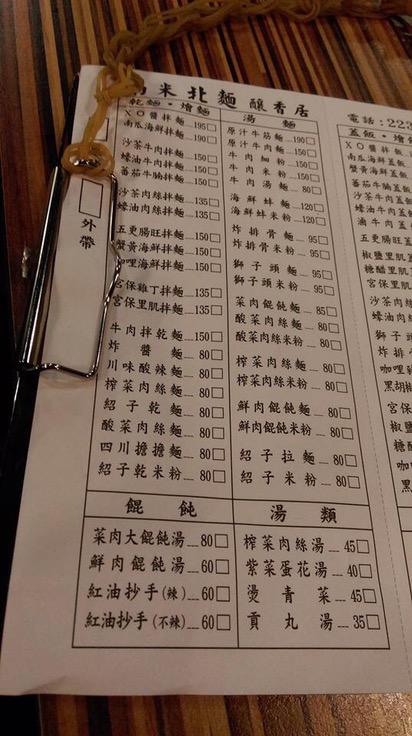 米北麵 釀香居
電話:223
外帶
乾麵・燴麵
XO醬拌麵 195□
南瓜海鮮拌麵 190□
沙茶牛肉拌麵 150□
蠔油牛肉拌麵 150□
蕃茄牛腩拌麵 150□
沙茶肉絲拌麵 135□
蠔油肉絲拌麵 135□
五更腸旺拌麵 150□
蟹黃海鮮拌麵 150□
咖哩海鮮拌麵 150□
宮保雞丁拌麵 135□
宮保里肌拌麵 135□
牛肉拌乾麵 150□
炸醬麵 80□
川味酸辣麵 80□
榨菜肉絲麵 80□
紹子乾麵 80□
酸菜肉絲麵 80□
四川擔擔麵 80□
紹子乾米粉 80□
湯麵
原汁牛筋麵 190□
原汁牛肉麵 150□
牛肉細粉 150□
牛肉米粉 150□
牛肉湯麵 80□
海鮮蚌麵 120□
海鮮蚌米粉 120□
炸排骨麵 95□
炸排骨米粉 95□
獅子頭麵 95□
獅子頭米粉 95□
菜肉餛飩麵 85□
酸菜肉絲麵 80□
酸菜肉絲米粉 80□
榨菜肉絲麵 80□
榨菜肉絲米粉 80□
鮮肉餛飩麵 80□
鮮肉餛飩米粉 80□
紹子拉麵 80□
紹子米粉 80□
蓋飯・燴飯
XO醬燴飯
南瓜海鮮蓋
蟹黃海鮮蓋
蕃茄牛腩蓋
沙茶牛肉蓋
蠔油牛肉蓋
滷牛肉蓋
五更腸旺蓋
椒鹽里肌
糖醋里肌
宮保里肌
沙茶肉絲
蠔油肉絲
炸排
咖哩
黑胡椒
宮保
椒鹽
糖醋
咖
黑
餛飩
菜肉大餛飩湯 80□
鮮肉餛飩湯 60□
紅油抄手(辣) 60□
紅油抄手(不辣) 60□
湯類
榨菜肉絲湯 45□
紫菜蛋花湯 40□
燙青菜 45□
貢丸湯 35□